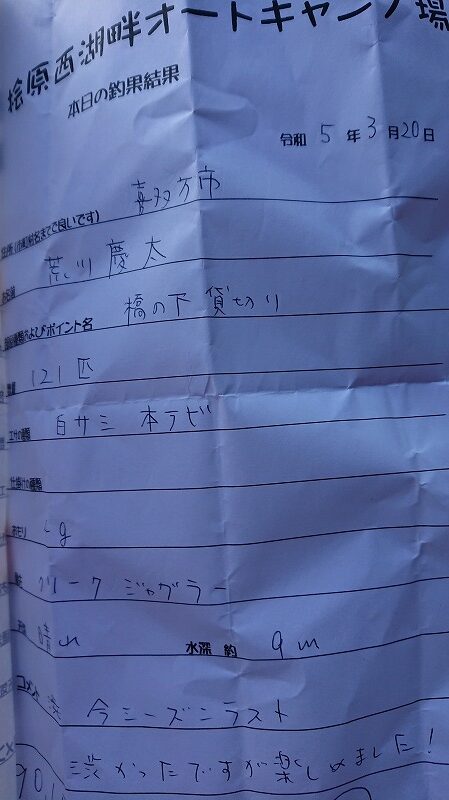 桧原西湖畔オートキャンプ場
本日の釣果結果
令和 5 年 3 月 20 日
住所(市町村名までで良いです) 喜多方市
荒川慶太
およびポイント名 橋の下 貸切り
121匹
エサの種類 白サシ 本ラビ
仕掛けの種類
おもり g
クリーク ジャグラー
晴れ 水深 約 9m
コメント 今シーズンラスト
渋かったですが楽しめました!